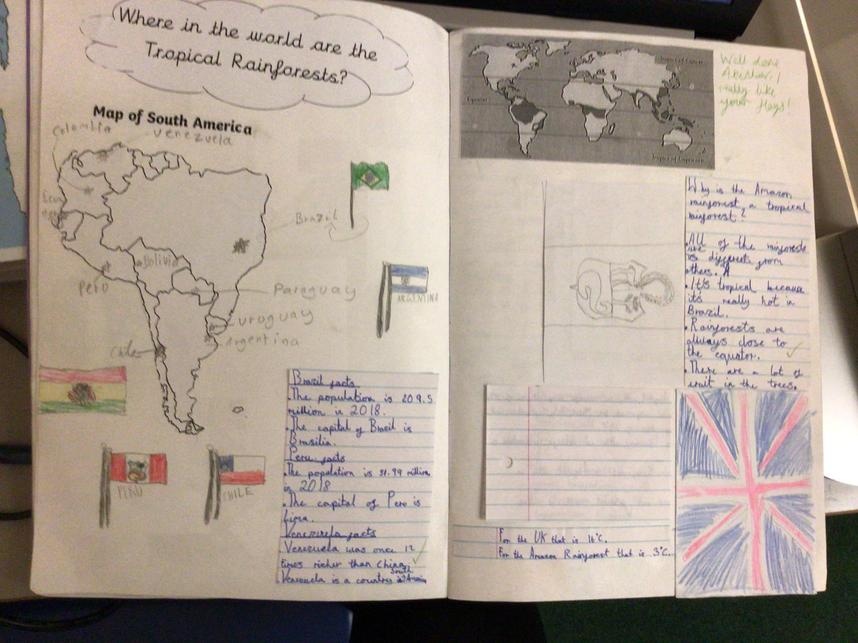 Where in the world are the
Tropical Rainforests?
Map of South America
Colombia
Venezuela
Brazil
Bolivia
Peru
Paraguay
Uruguay
Argentina
Chile
ARGENTINA
PERU
CHILE
Brazil facts
.The population is 209.5
million in 2018.
.The capital of Brazil is
Brasilia.
Peru facts
.The population is 31.99 million
in 2018
.The capital of Peru is
Lima.
Venezuela facts
Venezuela was once 12
times richer than China.
Venezuela is a country in South America
Equator
Tropic of Cancer
Tropic of Capricorn
Well done
I
really like
your flags!
Why is the Amazon
rainforest a tropical
rainforest?
.All of the rainforests
are different from
others.
.It's tropical because
its really hot in
Brazil.
.Rainforests are
always close to
the equator.
.There are a lot of
fruit in the trees.
For the UK that is 16°C.
For the Amazon Rainforest that is 3°C.